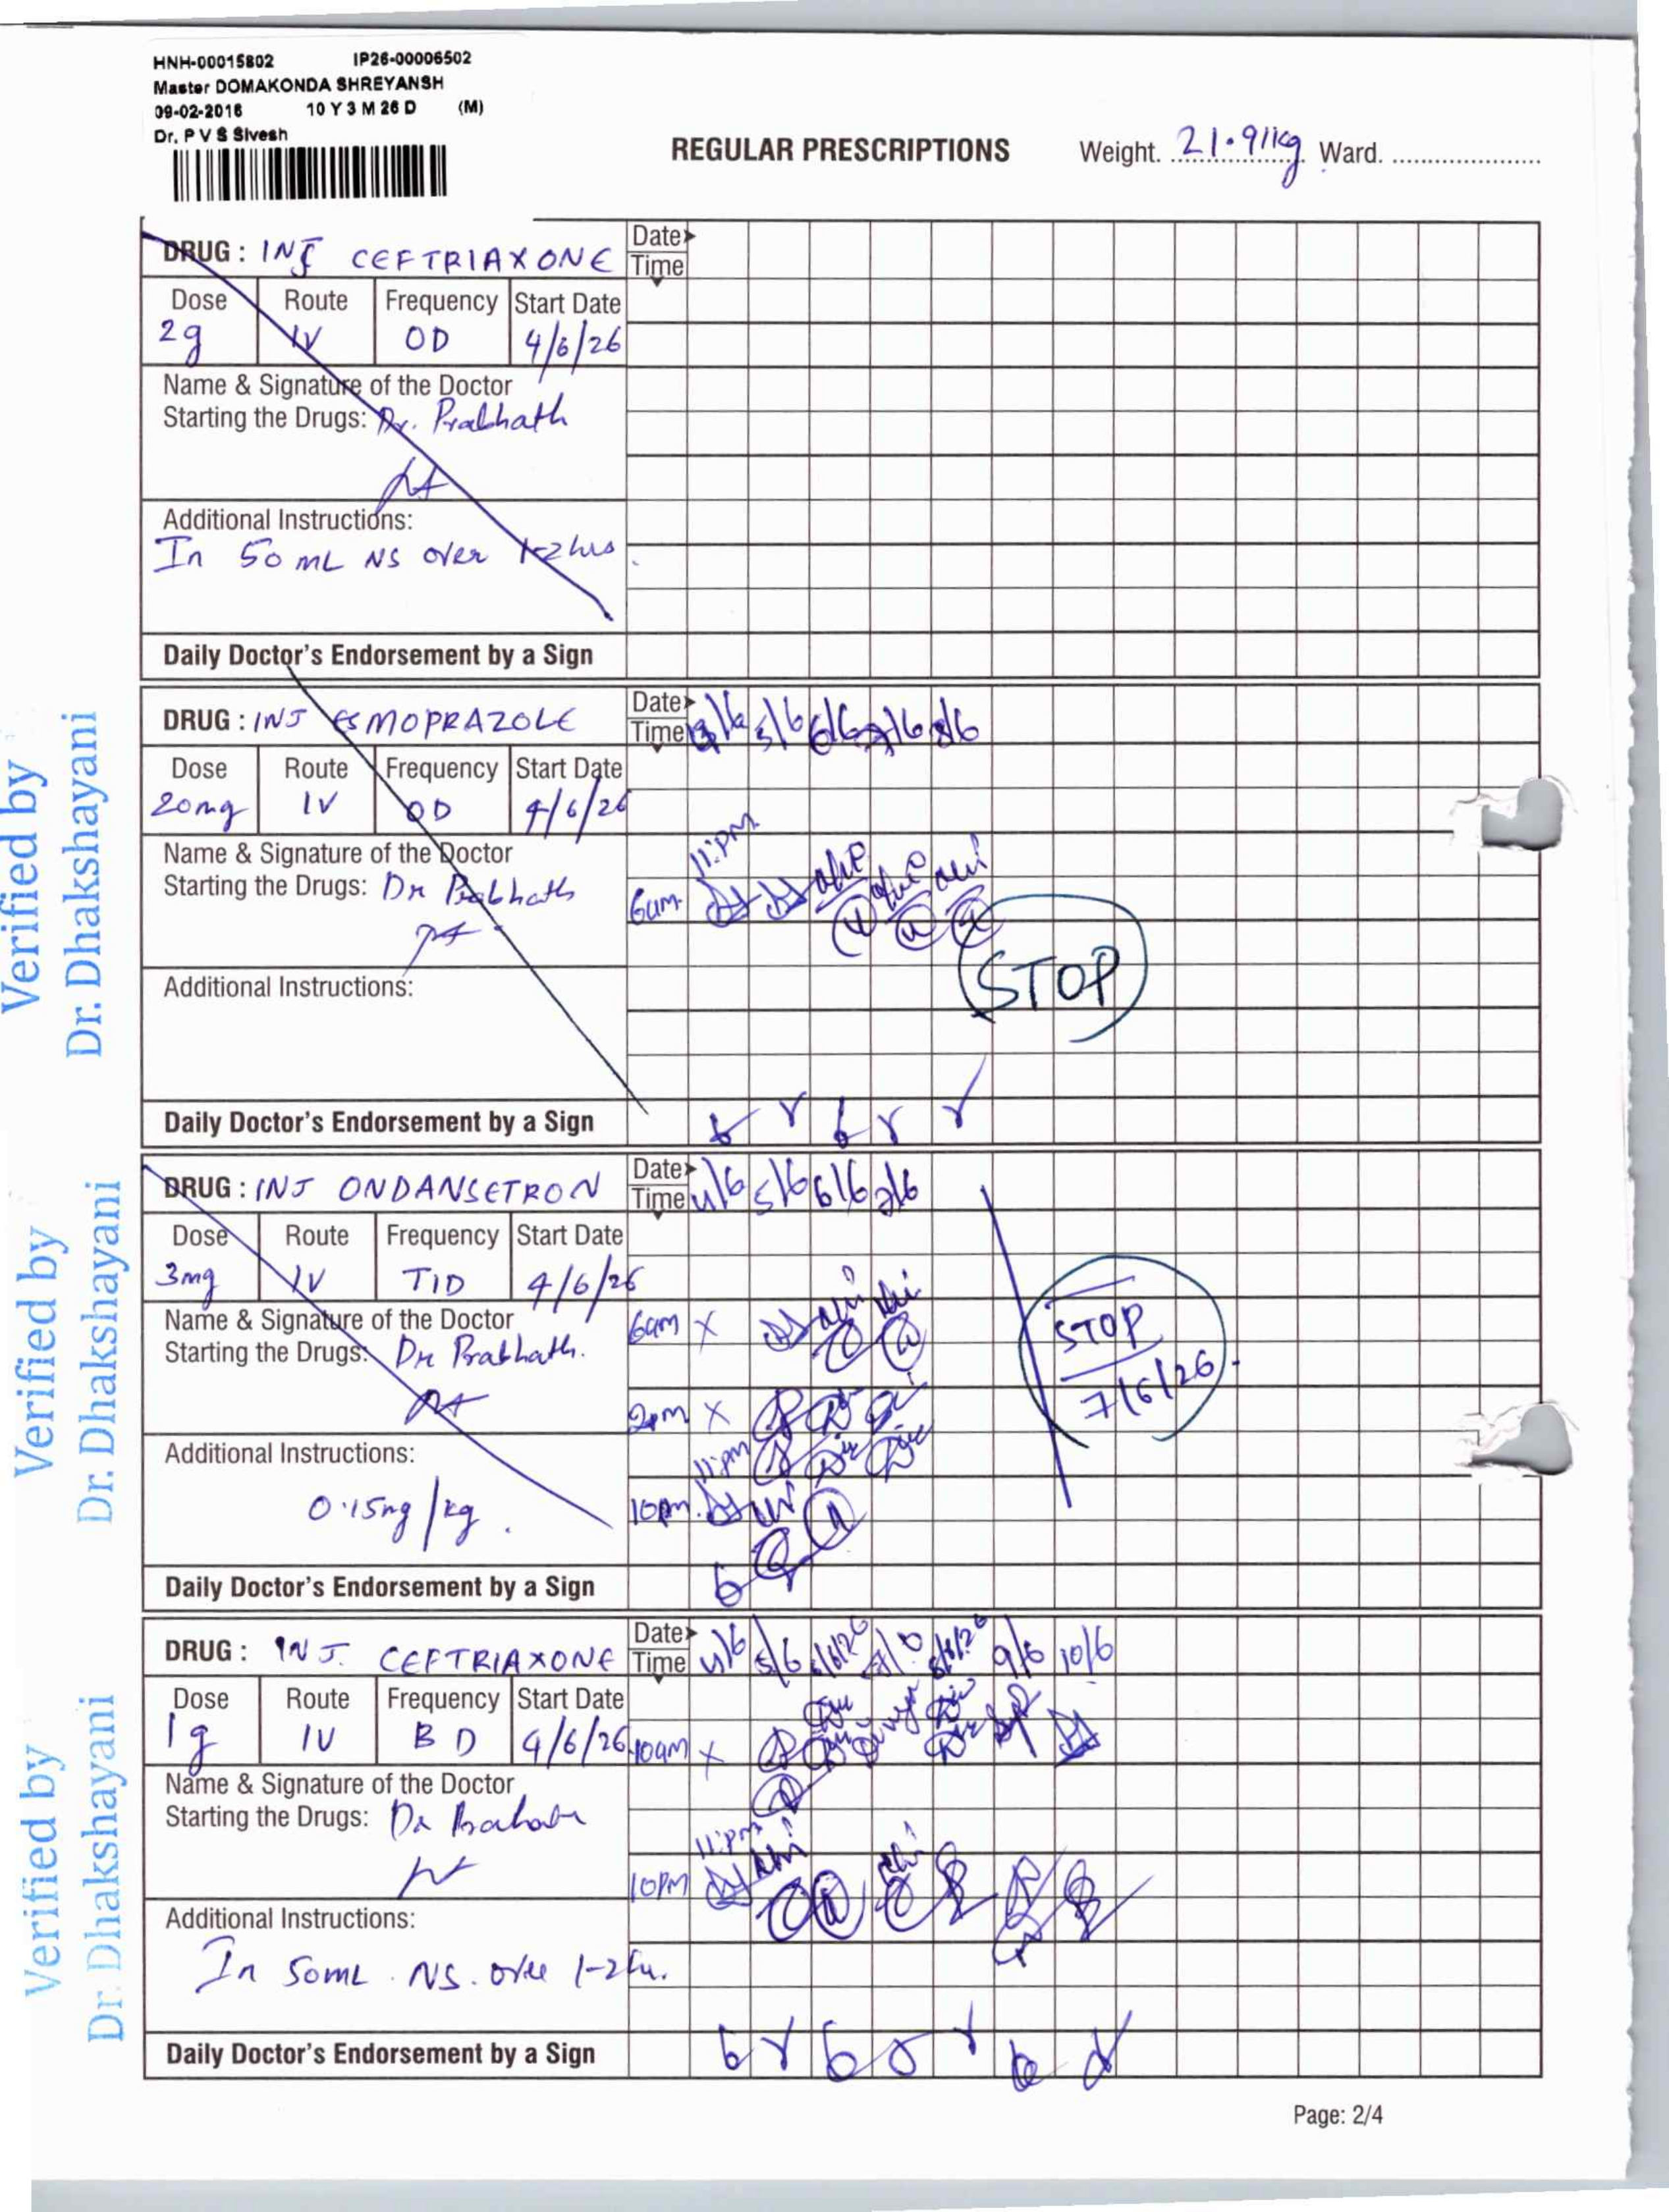 HNH-00015802 IP26-00006502
Master DOMAKONDA SHREYANSH
09-02-2016 10 Y 3 M 26 D (M)
Dr. P V S Sivesh
REGULAR PRESCRIPTIONS Weight. 21.91kg Ward.
DRUG : INJ CEFTRIAXONE Date
Time
Dose Route Frequency Start Date
2g IV OD 4/6/26
Name & Signature of the Doctor
Starting the Drugs: Dr. Prabhath
Additional Instructions:
In 50 mL NS over 1-2 hrs.
Daily Doctor's Endorsement by a Sign
DRUG : INJ ESMOPRAZOLE Date
Time 5/6 6/6 7/6 8/6
Dose Route Frequency Start Date
20mg IV OD 4/6/26
11:PM
Name & Signature of the Doctor
Starting the Drugs: Dr Prabhath 6am
STOP
Additional Instructions:
Daily Doctor's Endorsement by a Sign
DRUG : INJ ONDANSETRON Date
Time 4/6 5/6 6/6 7/6
Dose Route Frequency Start Date
3mg IV TID 4/6/26
Name & Signature of the Doctor 6am X
Starting the Drugs: Dr Prabhath.
STOP
7/6/26.
2pm X
Additional Instructions: 11:pm
0.15mg/kg. 10pm.
Daily Doctor's Endorsement by a Sign
DRUG : INJ. CEFTRIAXONE Date
Time 4/6 5/6 6/6/26 8/6/26 9/6 10/6
Dose Route Frequency Start Date
1g IV BD 4/6/26 10am X
Name & Signature of the Doctor
Starting the Drugs: Dr
11:pm
10PM
Additional Instructions:
In 50mL. NS. over 1-2hr.
Daily Doctor's Endorsement by a Sign
Page: 2/4
Verified by
Dr. Dhakshayani
Verified by
Dr. Dhakshayani
Verified by
Dr. Dhakshayani